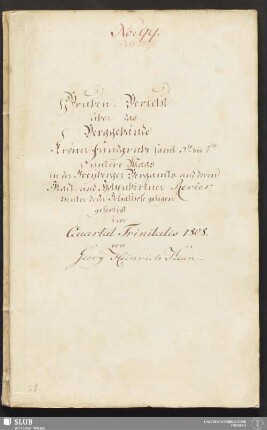 No: 99.
Gruben-Bericht
über das
Berggebäude
Kröner Fundgrube samt 1te bis
untere Maas
in der Freyberger Bergamts und deren
Stadt und Hohenbirkner Revier
hinter dem Schafhofe gelegen
gefertigt
im
Quartal Trinitatis 1808.
von
Georg Heinrich
SLUB